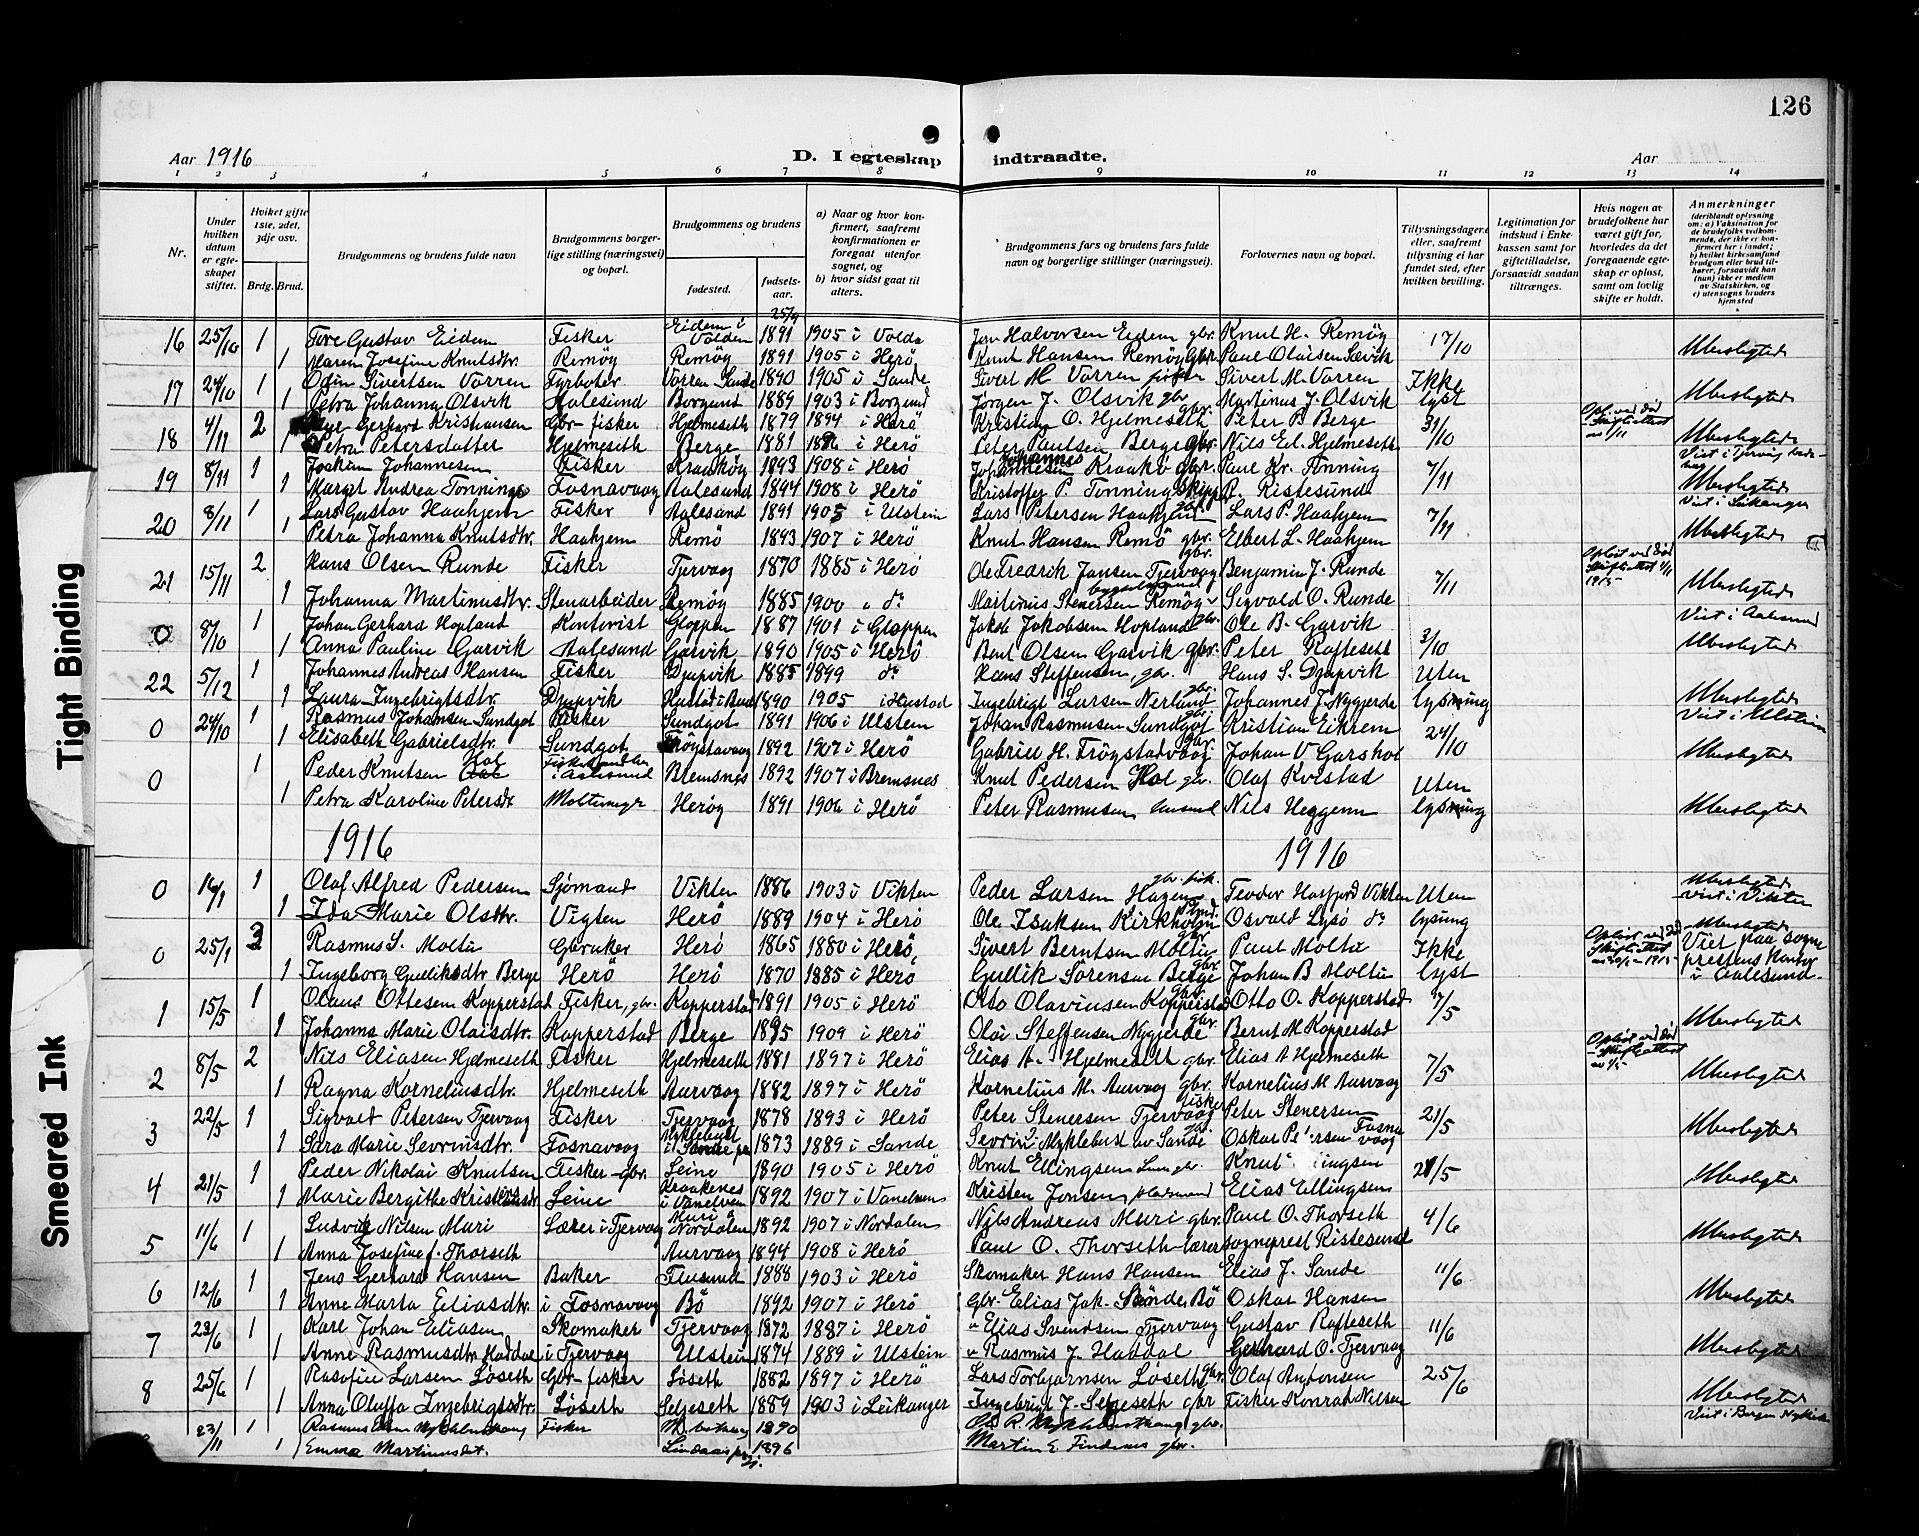 126
Aar 1916 D. I egteskap indtraadte. Aar
1 2 3 4 5 6 7 8 9 10 11 12 13 14
Nr.
Under hvilken datum er egteskapet stiftet.
Hviket gifte 1ste, 2det, 3dje osv.
Brdg. Brud.
Brudgommens og brudens fulde navn
Brudgommens borgerlige stilling (næringsvei) og bopæl.
Brudgommens og brudens
fødested.
fødselsaar.
a) Naar og hvor konfirmert, saafremt konfirmationen er foregaat utenfor sognet, og
b) hvor sidst gaat til alters.
Brudgommens fars og brudens fars fulde navn og borgerlige stillinger (næringsvei).
Forlovernes navn og bopæl.
Tillysningsdagene eller, saafremt tillysning ei har fundet sted, efter hvilken bevilling.
Legitimation for indskud i Enkekassen samt for giftetilladelse, forsaavidt saadan tiltrænges.
Hvis nogen av brudefolkene har været gift før, hvorledes da det foregaaende egteskap er opløst, samt om lovlig skifte er holdt.
Anmerkninger
(deriblandt oplysning om: a) Vaksination for de brudefolks vedkommende, der ikke er konfirmert her i landet; b) hvilket kirkesamfund brudgom eller brud tilhører, forsaavidt han (hun) ikke er medlem av Statskirken, og c) utensogns bruders hjemsted
16 25/10 1 Tore Gustav Eidem Fisker Eidem i Volden 25/9 1891 1905 i Volda Jon Halvorsen Eidem gbr. Knut H. Remöy 17/10
1 Maren Josefine Knutsdtr. Remöy Remöy 1891 1905 i Herö Knut Hansen Remöy Gbr. Paul Olaisen Sævik Ubesligtede
17 24/10 1 Odin Sivertsen Vorren Fyrböter Vorren Sande 1890 1905 i Sande Sivert M Vorren fisker Sivert M. Vorren Ikke
1 Petra Johanna Olsvik Aalesund Borgund 1889 1903 i Borgund Jörgen J. Olsvik gbr Martinus J. Olsvik lyst Ubesligtede
18 4/11 2 Gerhard Kristiansen Gbr-fisker Hjelmeseth 1879 1894 i Herö Kristian O. Hjelmeseth gbr. Peter B Berge 31/10
1 Petra Petersdatter Hjelmeseth Berge 1881 1896 i Herö Peter Paulsen Berge gbr. Nils Ed. Hjelmeseth Ubesligtede
19 8/11 1 Joakim Johannesen Fisker Kraaköy 1893 1908 i Herö Johannes Johannesen Kraakö gbr. Paul Kr. Tönning 7/11
1 Margit Andrea Tonning Fosnavaag Aalesund 1894 1908 i Herö Kristoffer P. Tonning Skipp P. Ristesund Ubesligtede
20 8/11 1 Lars Gustav Haahjem Fisker Aalesund 1891 1905 i Ulstein Lars Petersen Haahjem gbr Lars P. Haahjem 7/11 Viet i Leikanger
1 Petra Johanna Knutsdtr. Haahjem Remö 1893 1907 i Herö Knut Hansen Remö gbr. Elbert L. Haahjem Ubesligtede
21 15/11 2 Hans Olsen Runde Fisker Tjervaag 1870 1885 i Herö Ole Fredrik Jansen Tjervaag gbr. Benjamin J. Runde 7/11
1 Johanna Martinusdtr. Stenarbeider Remöy 1885 1900 " do Martinus Stenersen Remöy Sigvald O. Runde Ubesligtede
0 8/10 1 Johan Gerhard Hopland Kontorist Gloppen 1887 1901 i Gloppen Jakob Jakobsen Hopland gbr. Ole B. Garvik 3/10 Viet i Aalesund
1 Anna Pauline Garvik Aalesund Garvik 1890 1905 i Herö Bent Olsen Garvik gbr. Peter Rafteseth Ubesligtede
22 5/12 1 Johannes Andreas Hansen Fisker Djupvik 1885 1899 do Hans Steffensen, gbr. Hans S. Djupvik Uten
1 Laura Ingebrigtsdtr. Djupvik Hustad i Bud 1890 1905 i Hustad Ingebrigt Larsen Nerland gbr. Johannes J. Nygjerde lysning Ubesligtede
0 24/10 1 Rasmus Johansen Sundgot Fisker Sundgot 1891 1906 i Ulstein Johan Rasmussen Sundgot gbr Kristian Eikrem 24/10 Viet i Ulstein
1 Elisabeth Gabrielsdtr. Sundgot Frögstavaag 1892 1907 i Herö Gabriel H. Frögstadvaag gbr. Johan V Garshol Ubesligtede
0 1 Peder Knutsen Hol i Aalesund Bremsnes 1892 1907 i Bremsnes Knut Pedersen Hol gbr. Olaf Kvistad Uten
1 Petra Karoline Petersdtr Moltumyr Heröy 1891 1906 i Herö Peter Rasmussen husmd Nils Heggem lysning Ubesligtede
1916 1916
0 16/1 1 Olaf Alfred Pedersen Sjömand Vikten 1886 1903 i Vikten Peder Larsen Hagen gbr. fisk. Teodor Hasfjord Vikten Uten Ubesligtede
1 Ida Marie Olsdtr. Vigten Herö 1889 1904 i Herö Ole Isaksen Kirkholm Osvald Lysö do lysning Viet i Vikten
0 25/1 3 Rasmus S. Moltu Gbruker Herö 1865 1880 i Herö, Sivert Berntsen Moltu gbr Paul Moltu Ikke Ubesligtede
1 Ingeborg Gulliksdtr Berge Herö Herö 1870 1885 i Herö Gullik Sörensen Berge gbr Johan B Moltu lyst Viet paa sogneprestens kontor i Aalesund
1 15/5 1 Olaus Ottesen Kopperstad Fisker, gbr. Kopperstad 1891 1905 i Herö Otto Olavinsen Kopperstad gbr. Otto O. Kopperstad 7/5
1 Johanna Marie Olaisdtr. Kopperstad Berge 1895 1909 i Herö Olai Steffensen Nygjerde gbr. Bernt M. Kopperstad Ubesligtede
2 8/5 2 Nils Eliasen Hjelmeseth Fisker Hjelmeseth 1881 1897 i Herö Elias A. Hjelmeseth gbr. Elias A Hjelmeseth 7/5
1 Ragna Korneliusdtr. Hjelmeseth Aurvaag 1882 1897 i Herö Kornelius M. Aurvaag gbr. Kornelius M Aurvaag Ubesligtede
3 22/5 1 Sigvald Petersen Tjervaag Fisker Tjervaag 1878 1893 i Herö Peter Stenersen Tjervaag fisker Peter Stenersen 21/5
1 Sara Marie Sevrinsdtr. Fosnavaag Myklebust i Sande 1873 1889 i Sande Sevrin Myklebust av Sande gbr. Oskar Petersen Fosnavaag Ubesligtede
4 21/5 1 Peder Nikolai Knutsen Fisker-gbr. Leine 1890 1905 i Herö Knut Ellingsen gbr. Knut Ellingsen 21/5
1 Marie Bergithe Kristensdtr Leine Kraakenes i Vanelven 1892 1907 i Vanelven Kristen Jonsen pladsmand Elias Ellingsen Ubesligtede
5 11/6 1 Ludvig Nilsen Muri Lærer i Tjervaag Muri i Nordalen 1892 1907 i Nordalen Nils Andreas Muri gbr. Paul O. Thorseth 4/6
1 Anna Josefine J. Thorseth Aurvaag 1894 1908 i Herö Paul O. Thorseth-lærer sogneprest Ristesund Ubesligtede
6 12/6 1 Jens Gerhard Hansen Baker Flusund 1888 1903 i Herö Skomaker Hans Hansen Elias J. Sande 11/6
1 Anne Marta Eliasdtr. i Fosnavaag Bö 1892 1907 i Herö Gbr. Elias Jak. Sande, Bö Oskar Hansen Ubesligtede
7 23/6 1 Karl Johan Eliasen Skomaker Tjervaag 1872 1887 i Herö " Elias Svendsen Tjervaag Gustav Rafteseth 11/6
1 Anne Rasmusdtr. Haddal i Tjervaag Ulstein 1874 1889 i Ulstein " Rasmus J. Haddal Gerhard O. Tjervaag Ubesligtede
8 25/6 1 Larsen Löseth Gbr-fisker Löseth 1882 1897 i Herö Lars Torbjørnsen Løseth gbr. Olaf Antonsen 25/6
1 Anna Oluffa Ingebrigtsdtr. Löseth Seljeseth 1889 1903 i Leikanger Ingebrigt J. Seljeseth gbr Fisker Konrad Nilsen Ubesligtede
23/11 1 Rasmus Fisker 1890 gbr. Viet i Bergen
1 Emma Martinusdt. Lindaas 1896 Martin E. gbr.
Tight Binding
Smeared Ink